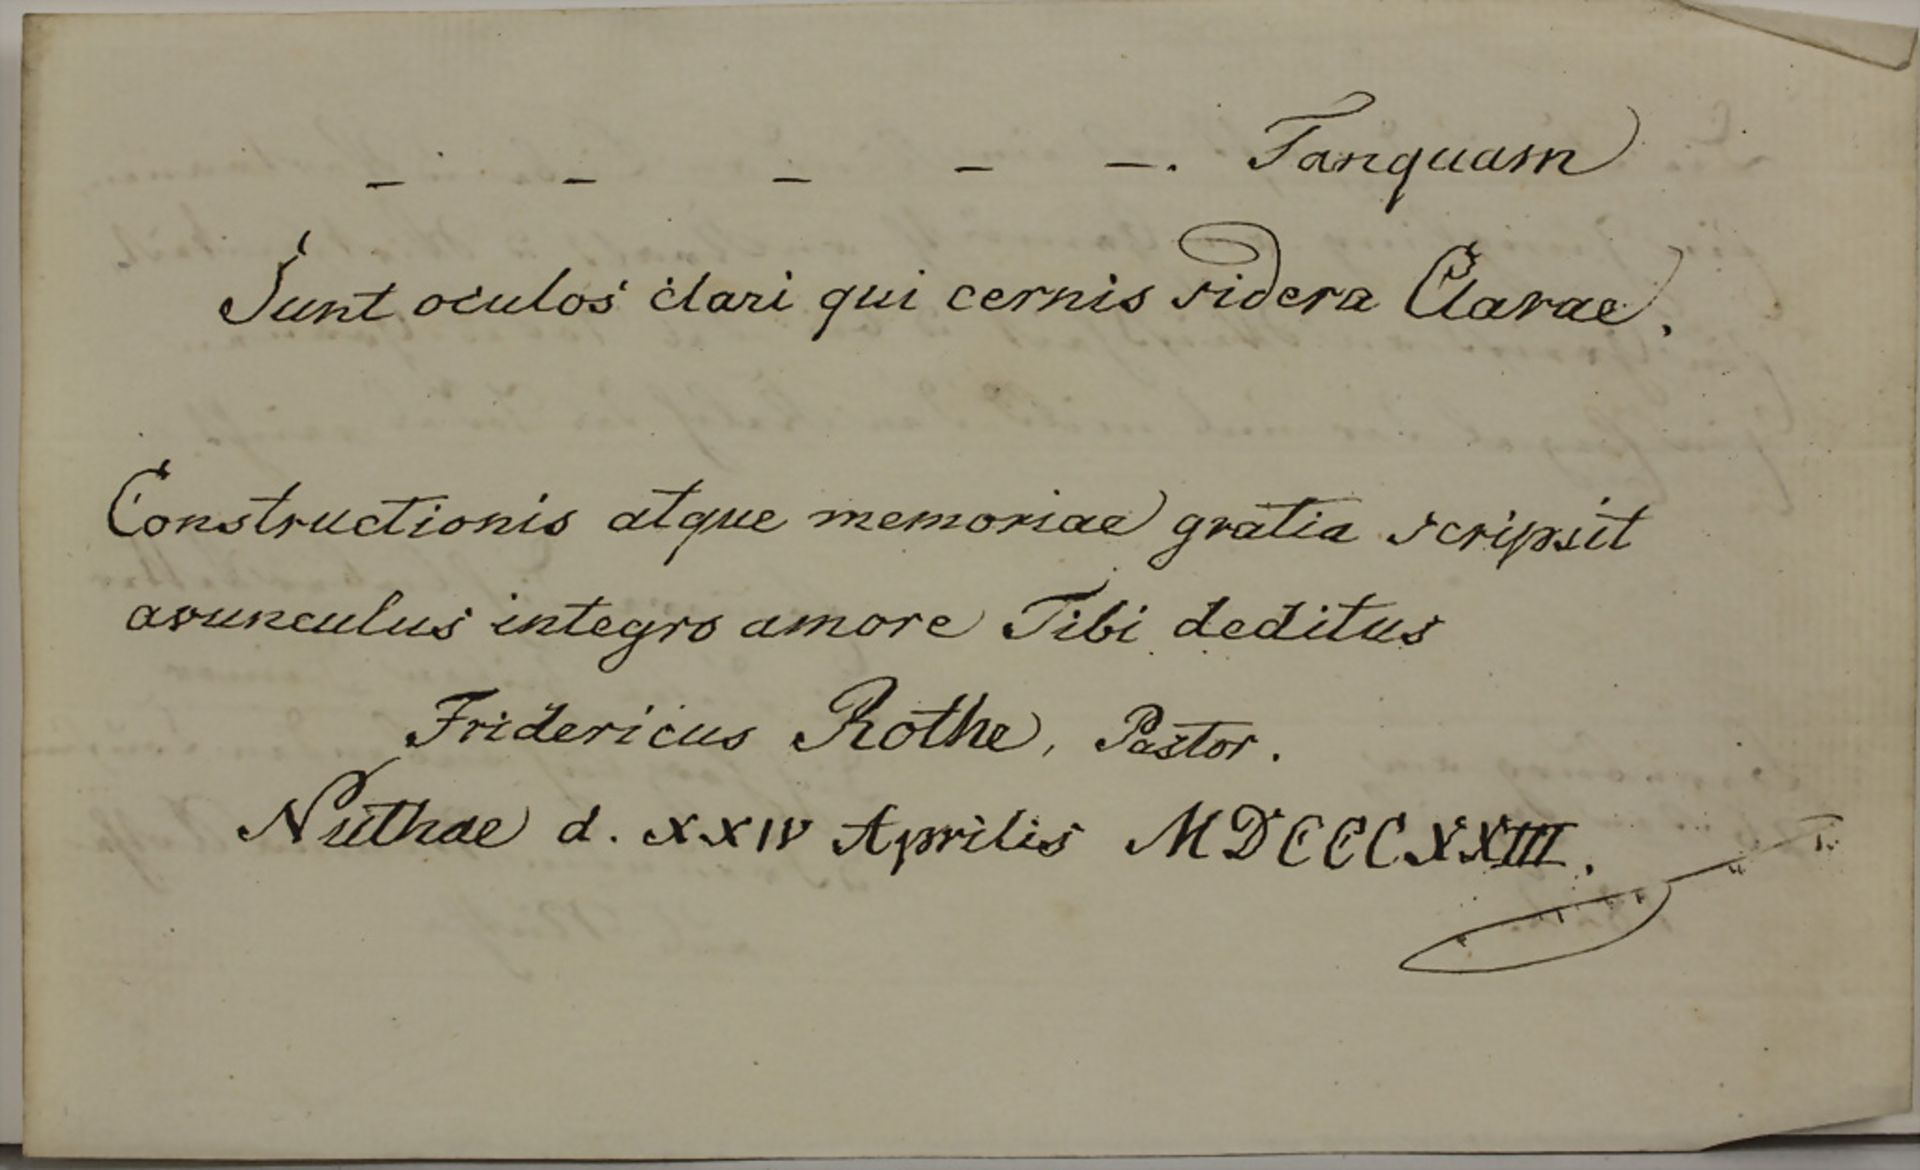 – – – – –. Tanquam
Sunt oculos clari qui cernis sidera Clarae.
Constructionis atque memoriae gratia scripsit
avunculus integro amore Tibi deditus
Fridericus Rothe, Pastor.
Nuthae d. XXIV Aprilis MDCCCXXIII.